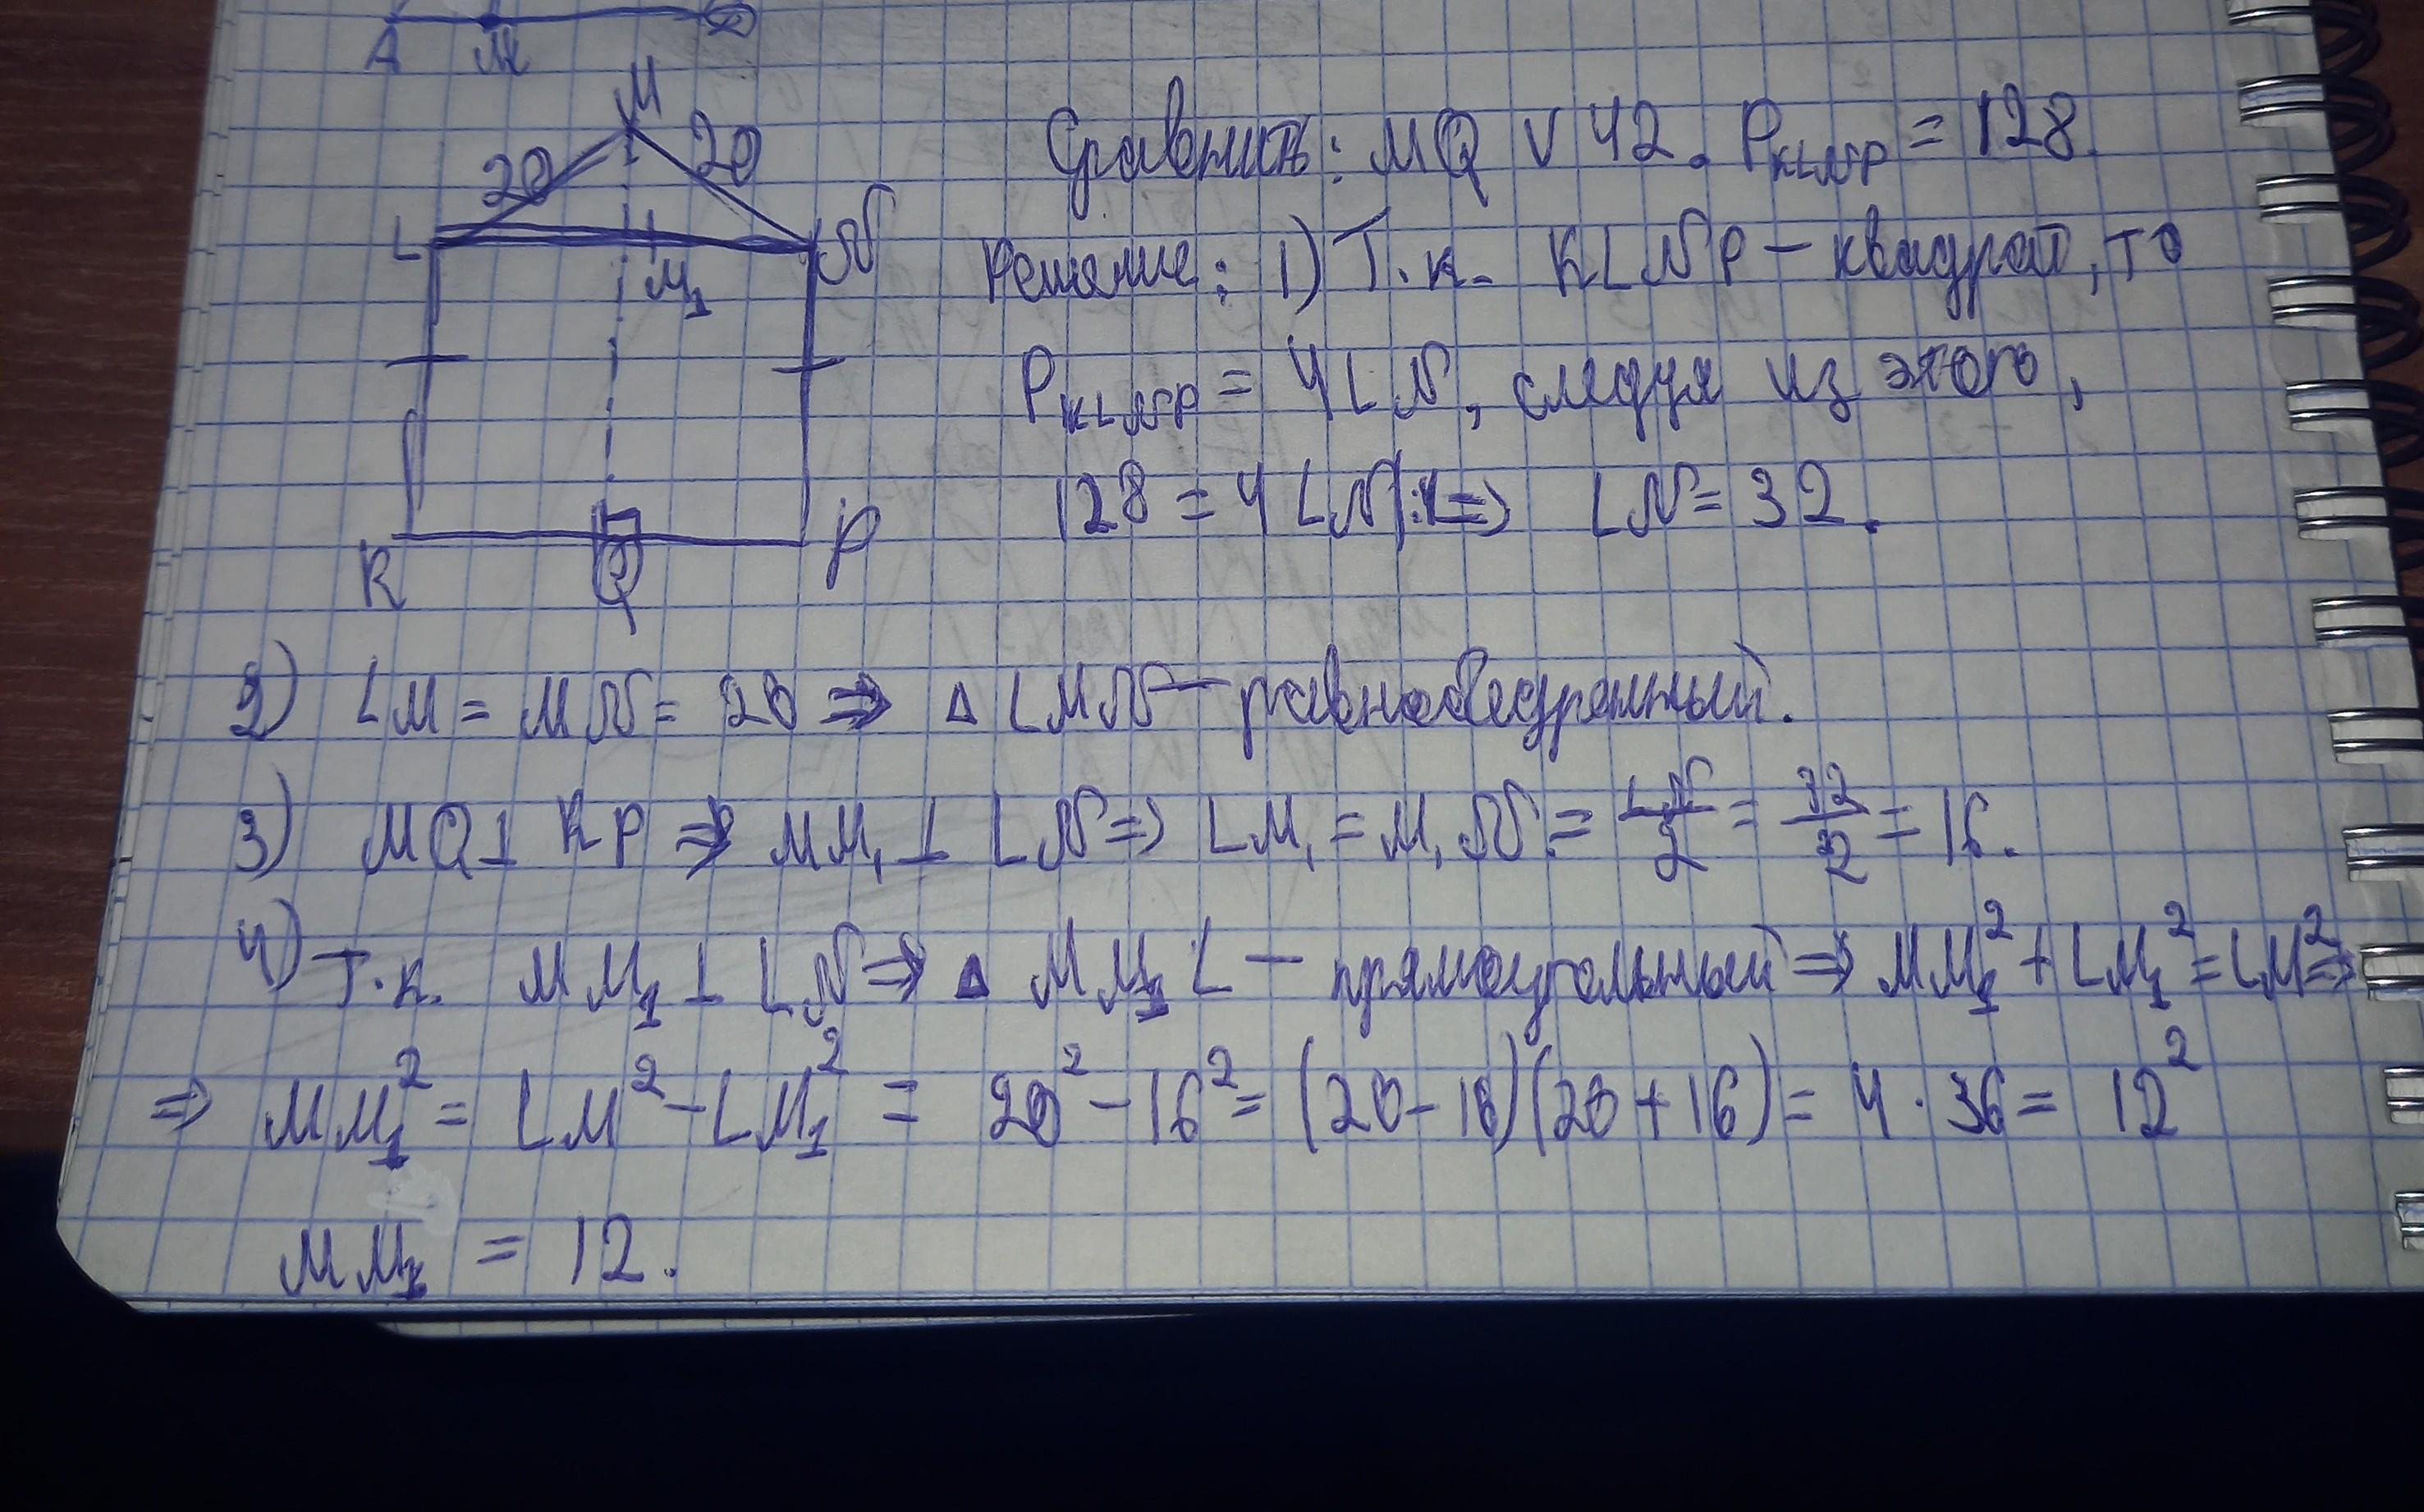 A M D
M
20 20
L N
M₁
K Q P
Сравнить: MQ V 42. P_KLNP = 128.
Решение: 1) Т.к. KLNP – квадрат, то
P_KLNP = 4LN, следуя из этого,
128 = 4LN |:4 => LN = 32.
2) LM = MN = 20 => Δ LMN – равнобедренный.
3) MQ ⊥ KP => MM₁ ⊥ LN => LM₁ = M₁N = LN/2 = 32/2 = 16.
4) Т.к. MM₁ ⊥ LN => Δ MM₁L – прямоугольный => MM₁² + LM₁² = LM² =>
=> MM₁² = LM² – LM₁² = 20² – 16² = (20–16)(20+16) = 4·36 = 12²
MM₁ = 12.